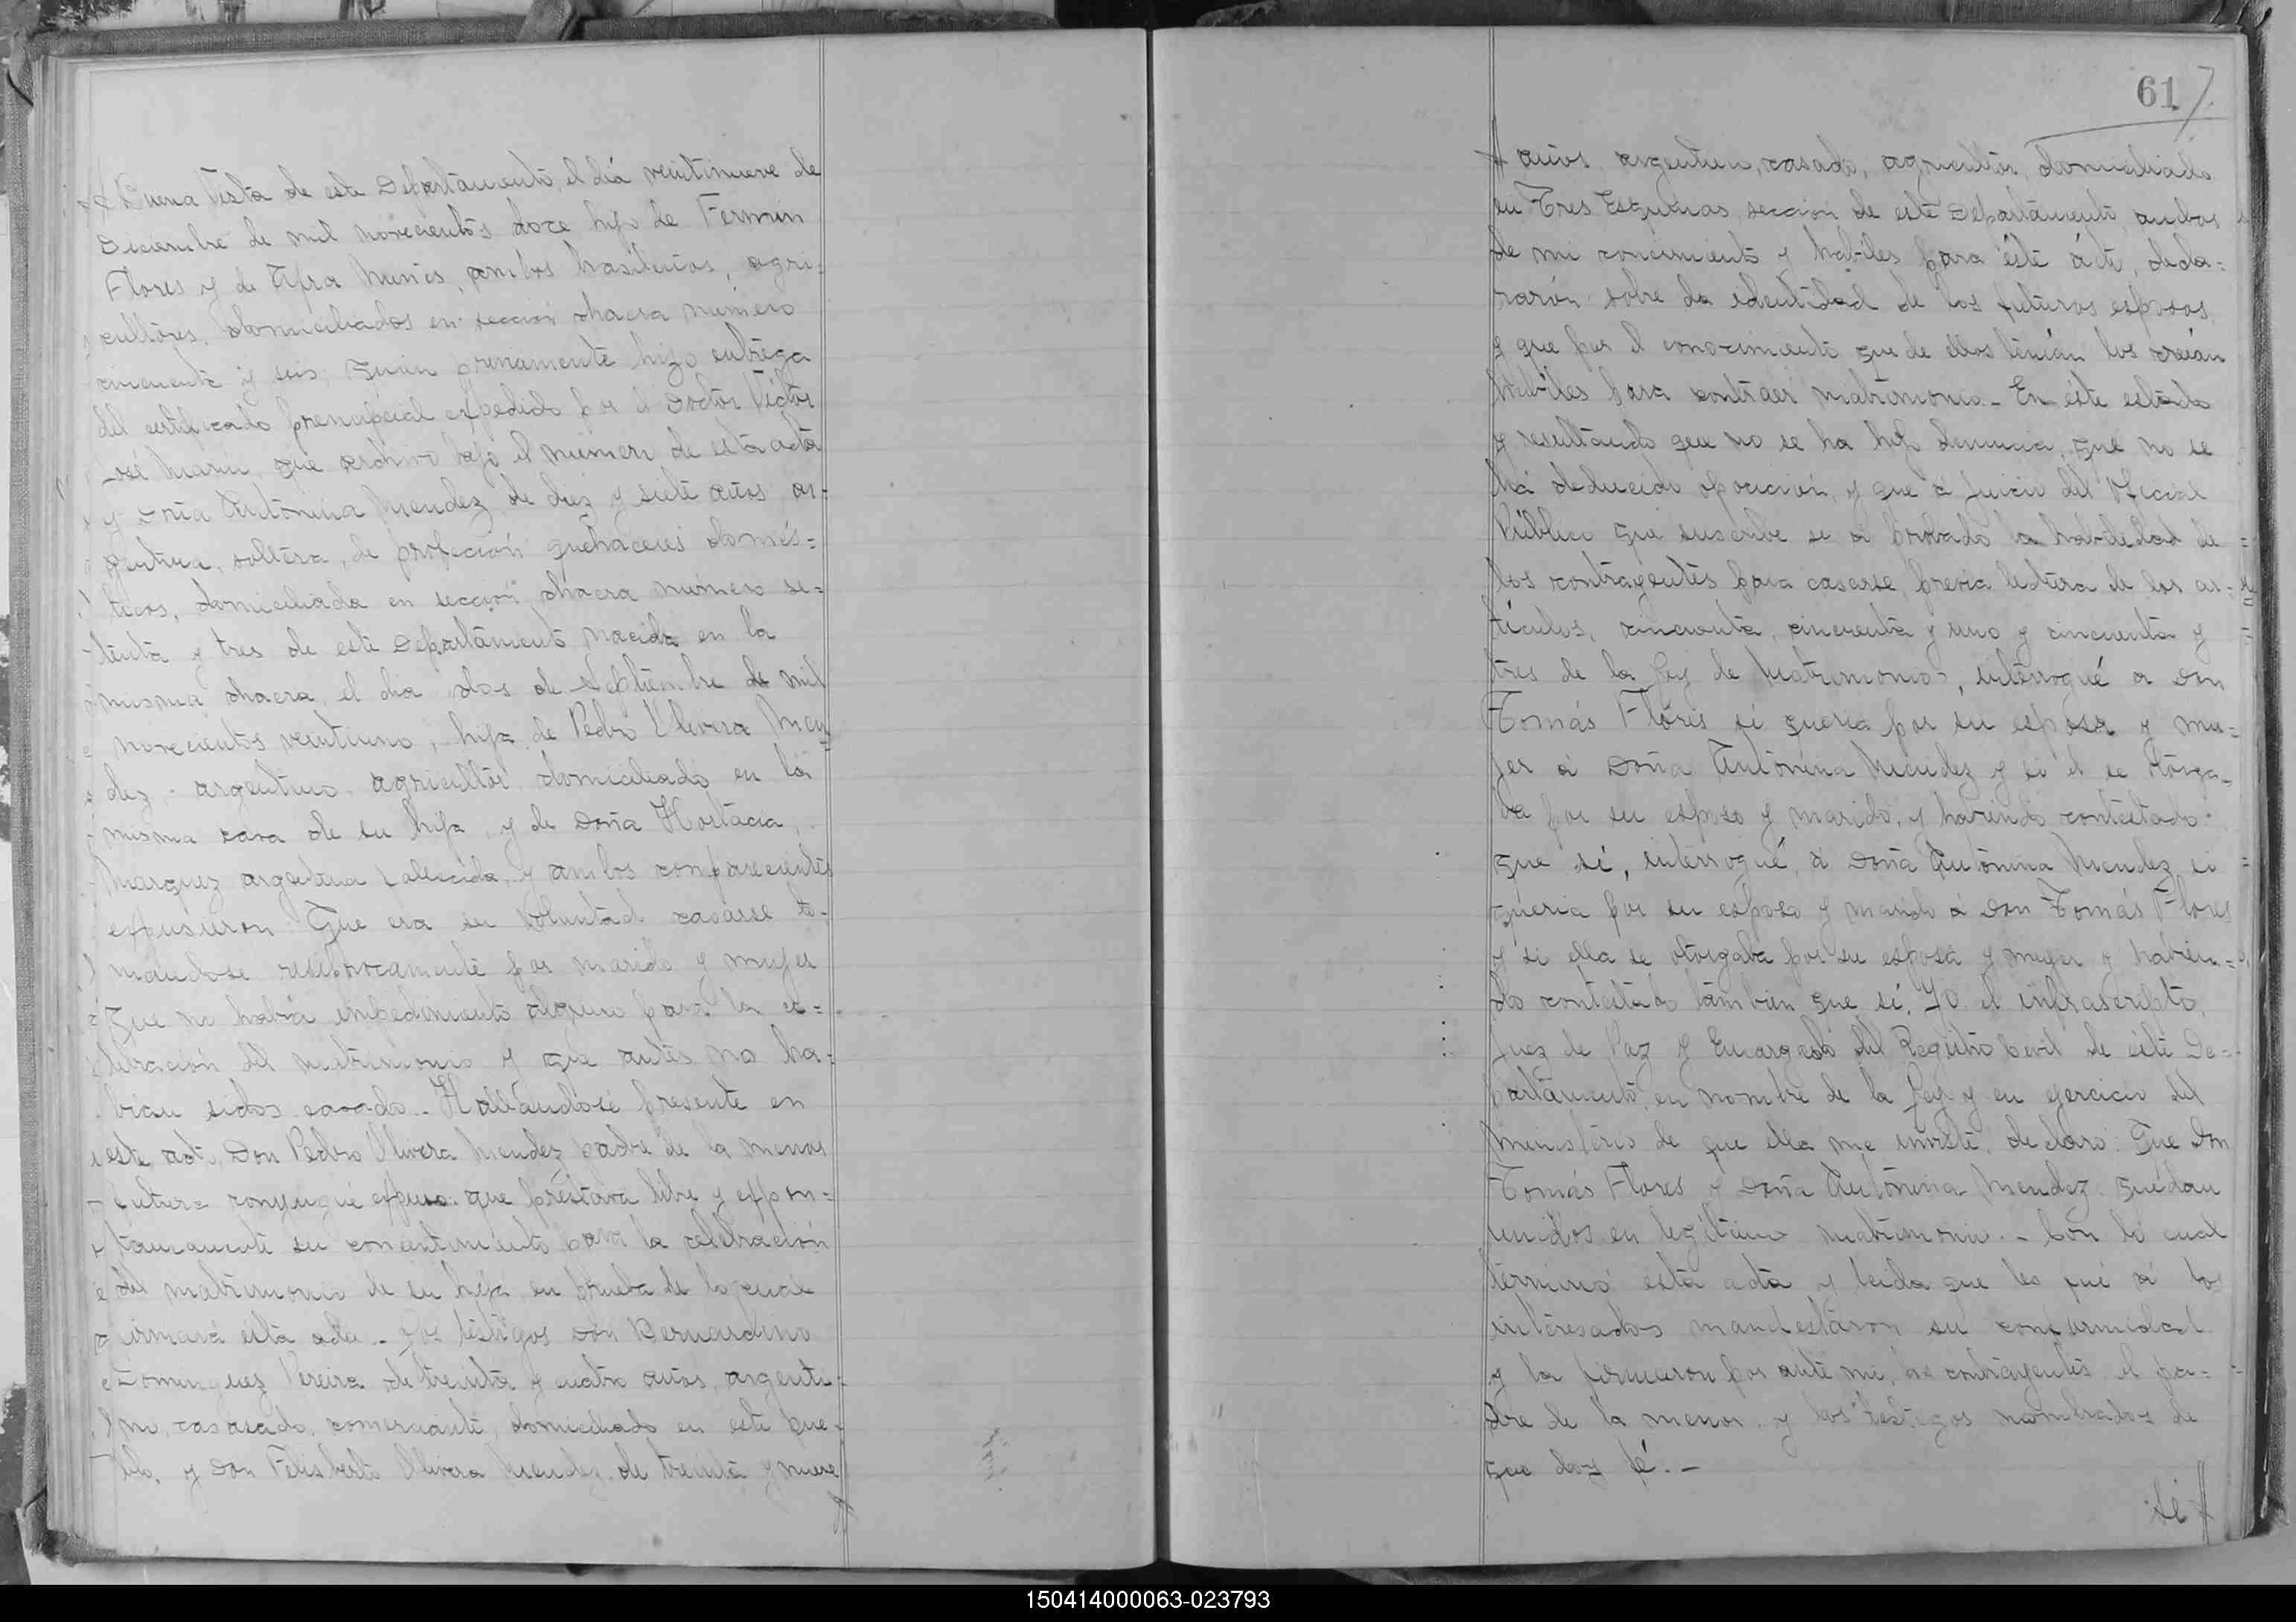 Buena Vista de este Departamento, el día veintinueve de
Diciembre de mil novecientos doce hijo de Fermin
Flores y de Afra Nunes, ambos brasileños, agri-
cultores, domiciliados en sección chacra número
cincuenta y seis; quien previamente hizo entrega
del certificado prenupcial expedido por el Doctor Víctor
José Marin, que archivo bajo el número de esta acta
y Doña Antonina Mendez de diez y siete años ar-
gentina, soltera, de profeción quehaceres domés=
ticos, domiciliada en sección chacra número se=
tenta y tres de este Departamento nacida en la
misma chacra, el dia dos de Septiembre de mil
novecientos veintiuno, hija de Pedro Olivera Men
dez, argentino, agricultor domiciliado en la
misma casa de su hija, y de Doña Hortacia
Marquez argentina fallecida, y ambos comparecientes
expusieron: Que era su voluntad casarse to-
mandose resiprocamente por marido y mujer
Que no había impedimento alguno para la ce=
lebración del matrimonio y que antes no ha=
bian sidos casado. Hallandose presente en
este acto, Don Pedro Olivera Mendez padre de la menor
futura conyugue expuso: que prestava libre y expon=
taneamente su consentimiento para la celebración
del matrimonio de su hija en prueba de lo cual
firmará esta acta. Los testigos Don Bernardino
Dominguez Pereira de treinta y cuatro años, argenti=
no, casasado, comerciante, domiciliado en este pue=
blo, y Don Felisberto Olivera Mendez, de treinta y nueve
61
años, argentino, casado, agricultor, domiciliado
en Tres Esquinas, sección de este Departamento, ambos
de mi conocimiento y habiles para éste acto, decla=
rarón sobre la identidad de los futuros esposos,
y que por el conocimiento que de ellos tenían los creían
habiles para contraer matrimonio. En éste estado
y resultando que no se ha hijo denuncia, que no se
ha deducido oposición, y que a juicio del Oficial
Público que suscribe se a probado la habilidad de
los contrayentes para casarse, previa lectura de los ar=
tículos, cincuenta, cincuenta y uno y cincuenta y
tres de la Ley de Matrimonio, interrogué a Don
Tomás Flores si queria por su esposa y mu=
jer a Doña Antonina Mendez y si el se otorga-
ba por su esposo y marido, y haviendo contestado
que sí, interrogué, a Doña Antonina Mendez si
queria por su esposo y marido a Don Tomás Flores
y si ella se otorgaba por su esposa y mujer y habien=
do contestado tambien que sí, Yo el infrascripto,
Juez de Paz y Encargado del Registro Civil de este De=
partamento, en nombre de la Ley y en ejercicio del
ministerio de que ella me inviste, declaro: Que Don
Tomás Flores y Doña Antonina Mendez quedan
unidos en legítimo matrimonio. - Con lo cual
terminó esta acta y leída que les fué a los
interesados manifestaron su conformidad
y la firmaron por ante mi, los contrayentes, el pa=
dre de la menor y los testigos nombrados de
que doy fé. -
150414000063-023793